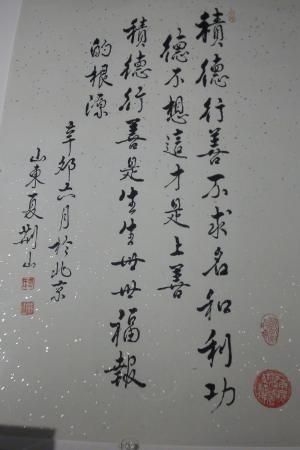 積德行善不求名和利功
德不想這才是上善
積德行善是生生世世福報
的根源
辛卯六月於北京
山東夏荆山